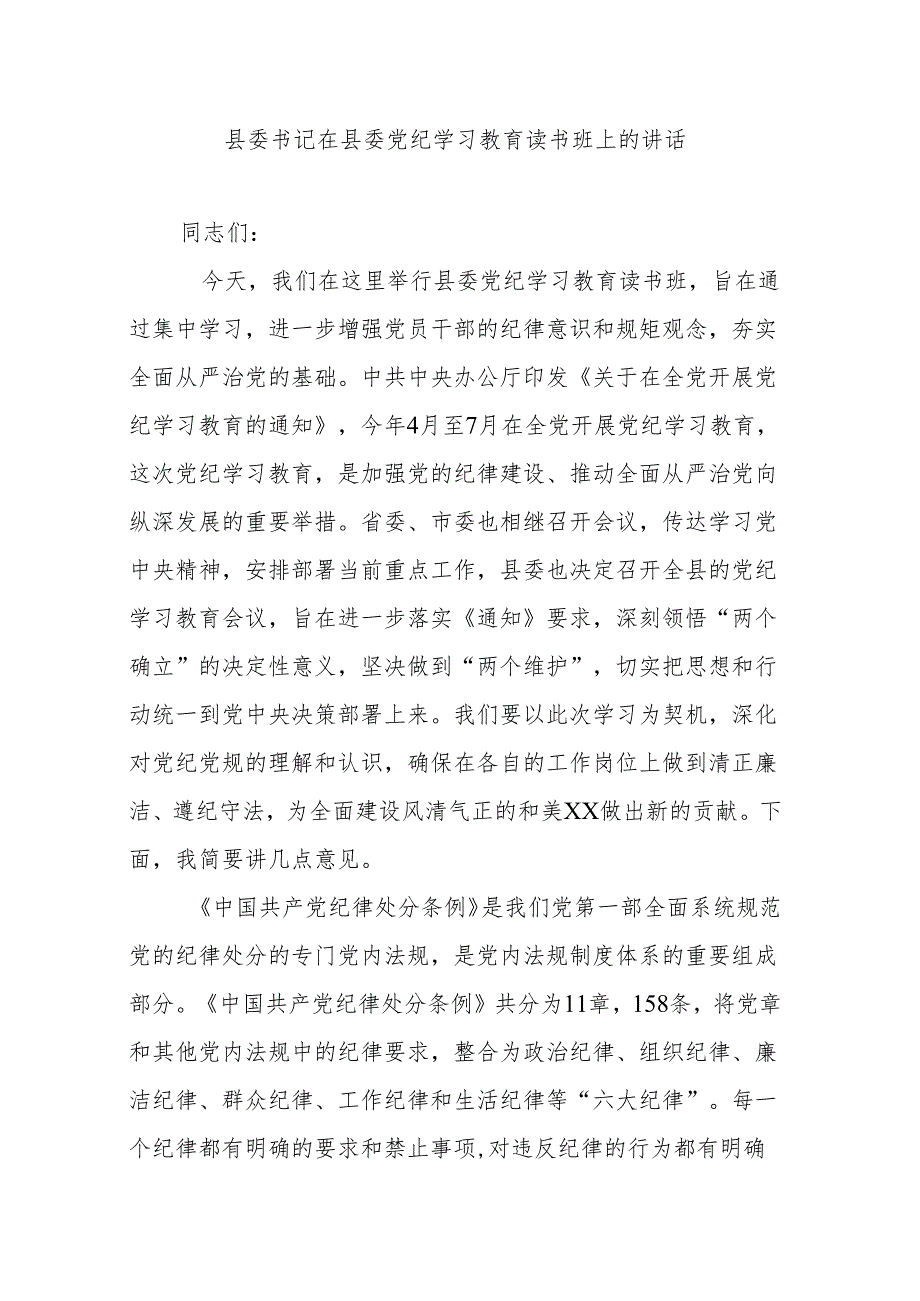 县委书记在县委党纪学习教育读书班上的讲话
同志们：
今天，我们在这里举行县委党纪学习教育读书班，旨在通
过集中学习，进一步增强党员干部的纪律意识和规矩观念，夯实
全面从严治党的基础。中共中央办公厅印发《关于在全党开展党
纪学习教育的通知》，今年4月至7月在全党开展党纪学习教育，
这次党纪学习教育，是加强党的纪律建设、推动全面从严治党向
纵深发展的重要举措。省委、市委也相继召开会议，传达学习党
中央精神，安排部署当前重点工作，县委也决定召开全县的党纪
学习教育会议，旨在进一步落实《通知》要求，深刻领悟“两个
确立”的决定性意义，坚决做到“两个维护”，切实把思想和行
动统一到党中央决策部署上来。我们要以此次学习为契机，深化
对党纪党规的理解和认识，确保在各自的工作岗位上做到清正廉
洁、遵纪守法，为全面建设风清气正的和美XX做出新的贡献。下
面，我简要讲几点意见。
《中国共产党纪律处分条例》是我们党第一部全面系统规范
党的纪律处分的专门党内法规，是党内法规制度体系的重要组成
部分。《中国共产党纪律处分条例》共分为11章，158条，将党章
和其他党内法规中的纪律要求，整合为政治纪律、组织纪律、廉
洁纪律、群众纪律、工作纪律和生活纪律等“六大纪律”。每一
个纪律都有明确的要求和禁止事项,对违反纪律的行为都有明确